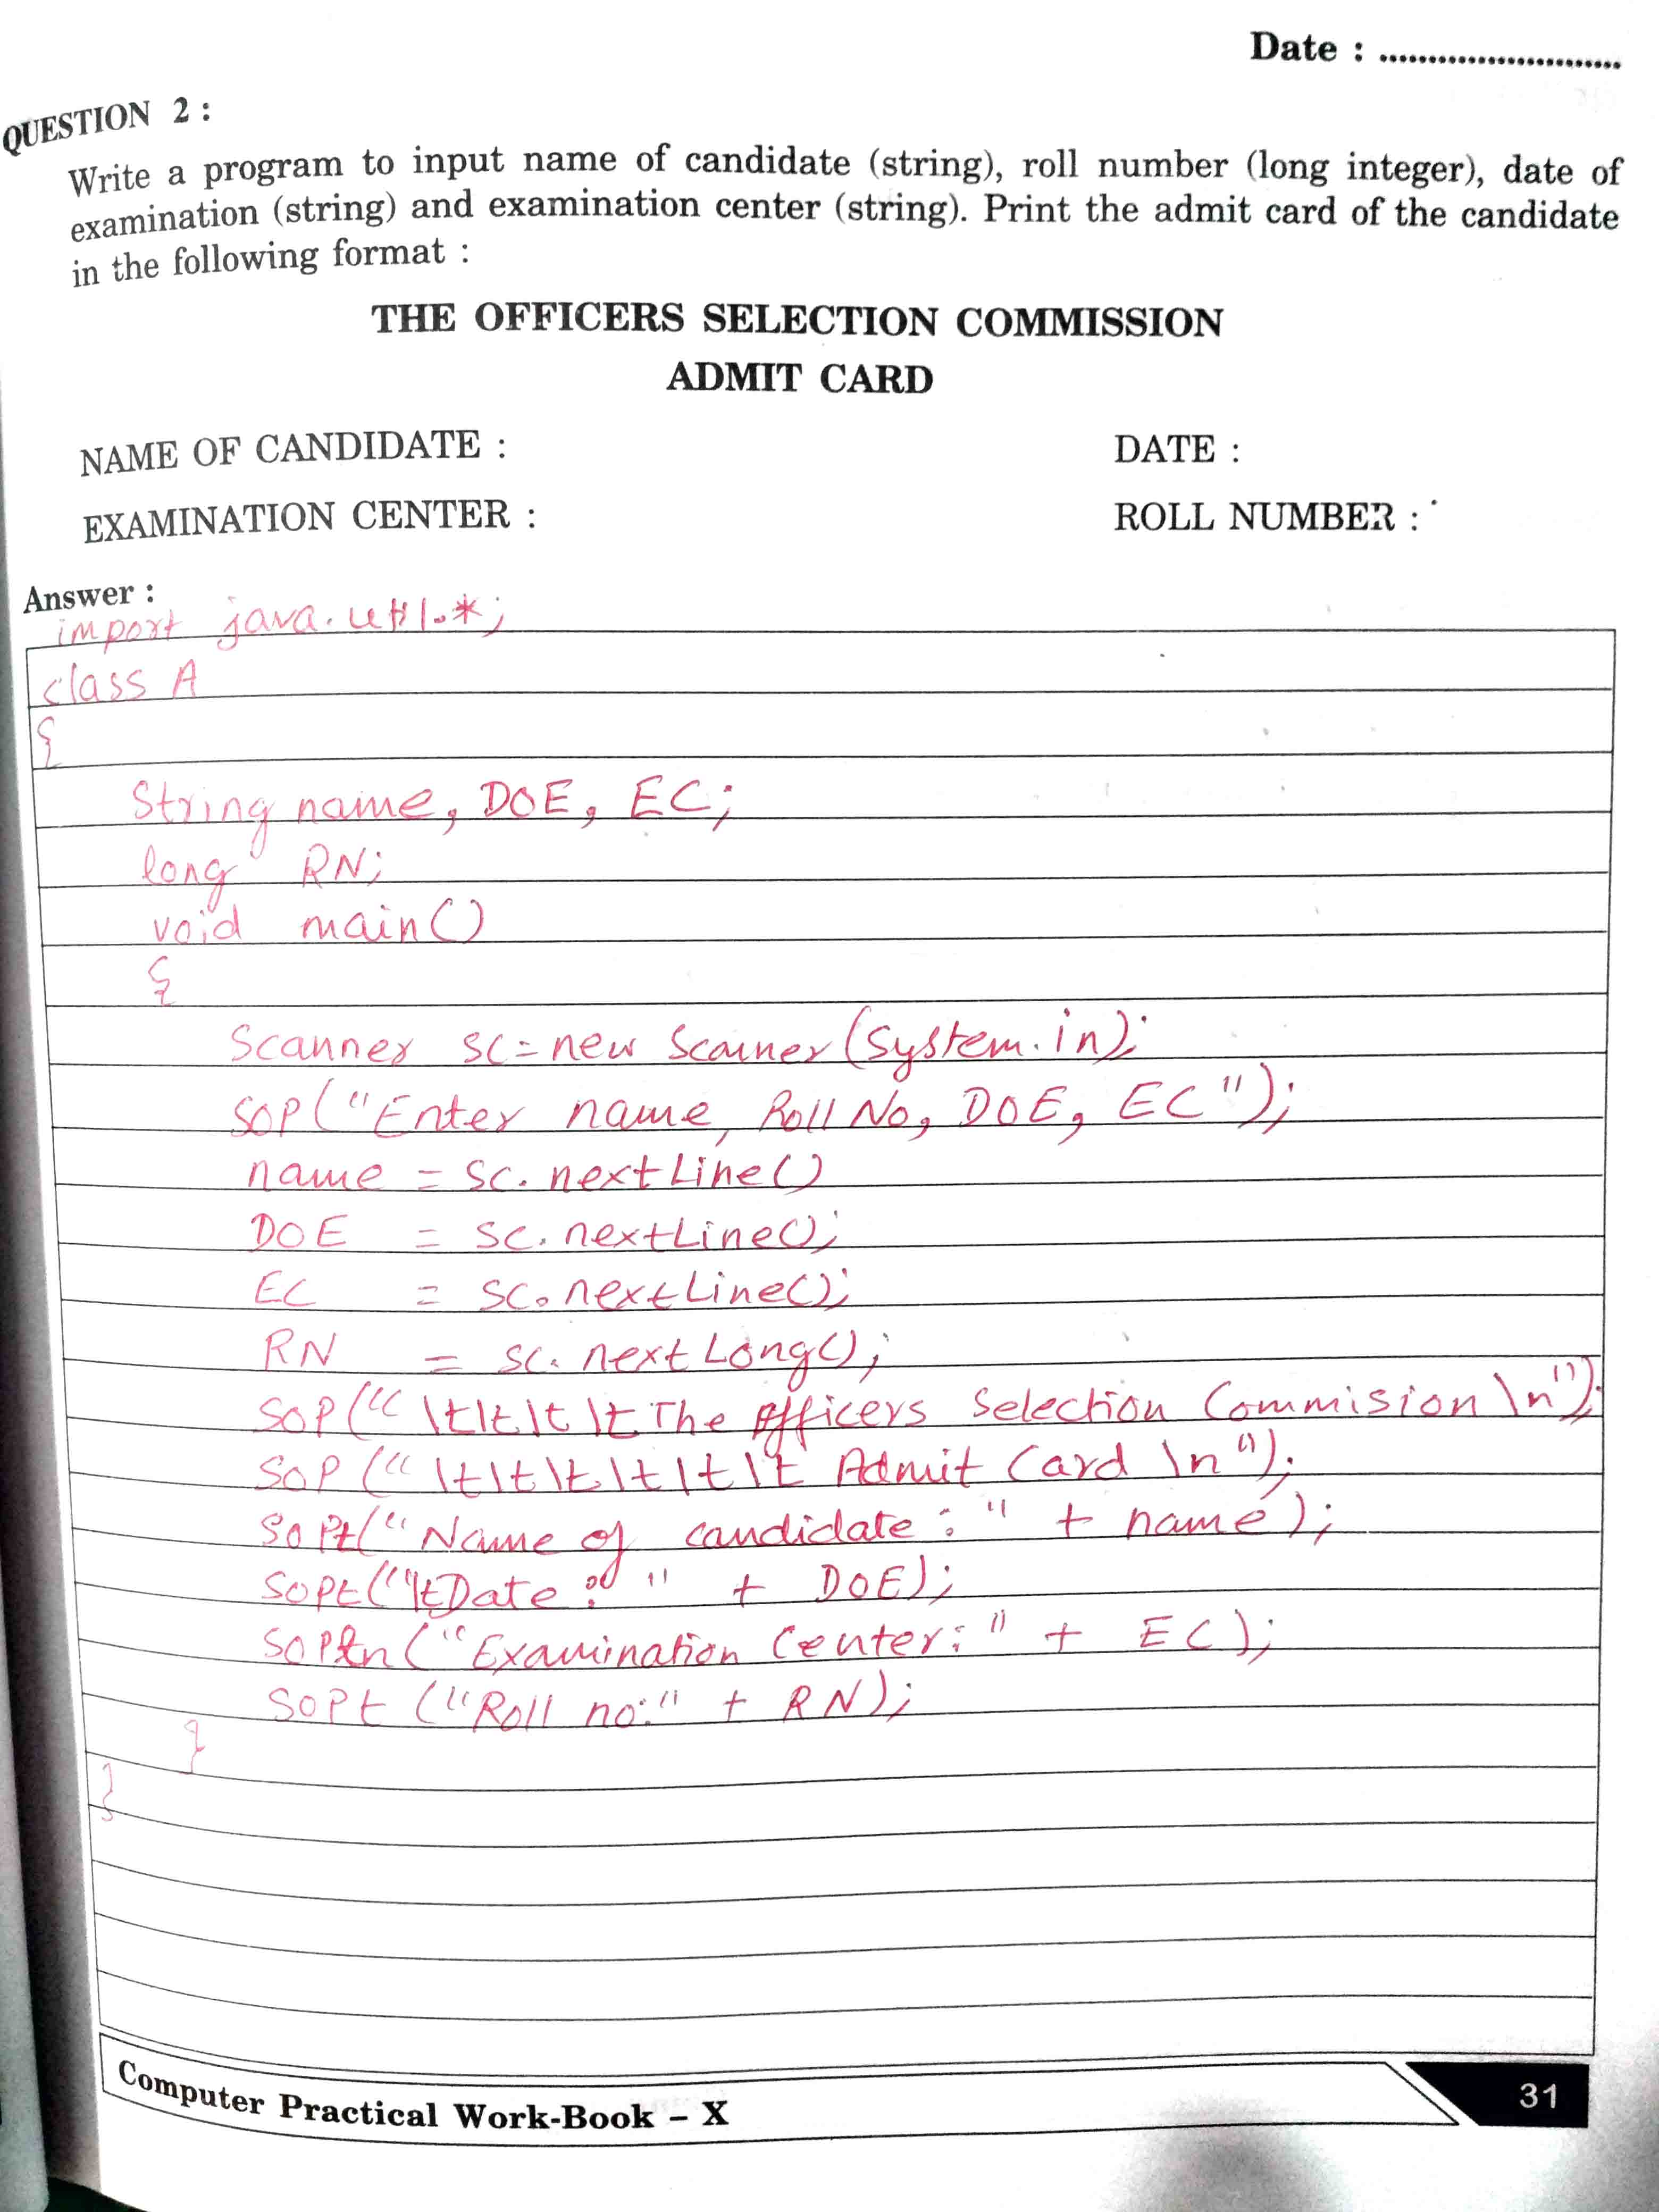 Date : ..........................
QUESTION 2 :
Write a program to input name of candidate (string), roll number (long integer), date of
examination (string) and examination center (string). Print the admit card of the candidate
in the following format :
THE OFFICERS SELECTION COMMISSION
ADMIT CARD
NAME OF CANDIDATE : DATE :
EXAMINATION CENTER : ROLL NUMBER :
Answer :
import java.util.*;
class A
{
String name, DOE, EC;
long RN;
void main()
{
Scanner sc=new Scanner(System.in);
SOP("Enter name, Roll No, DOE, EC");
name = sc.nextLine()
DOE = sc.nextLine();
EC = sc.nextLine();
RN = sc.nextLong();
SOP("\t\t\t\t The Officers Selection Commision \n");
SOP("\t\t\t\t\t\t Admit Card \n");
SOPt("Name of candidate : " + name);
SOPt("\tDate : " + DOE);
SOPln("Examination Center: " + EC);
SOPt ("Roll no:" + RN);
}
}
Computer Practical Work-Book – X
31